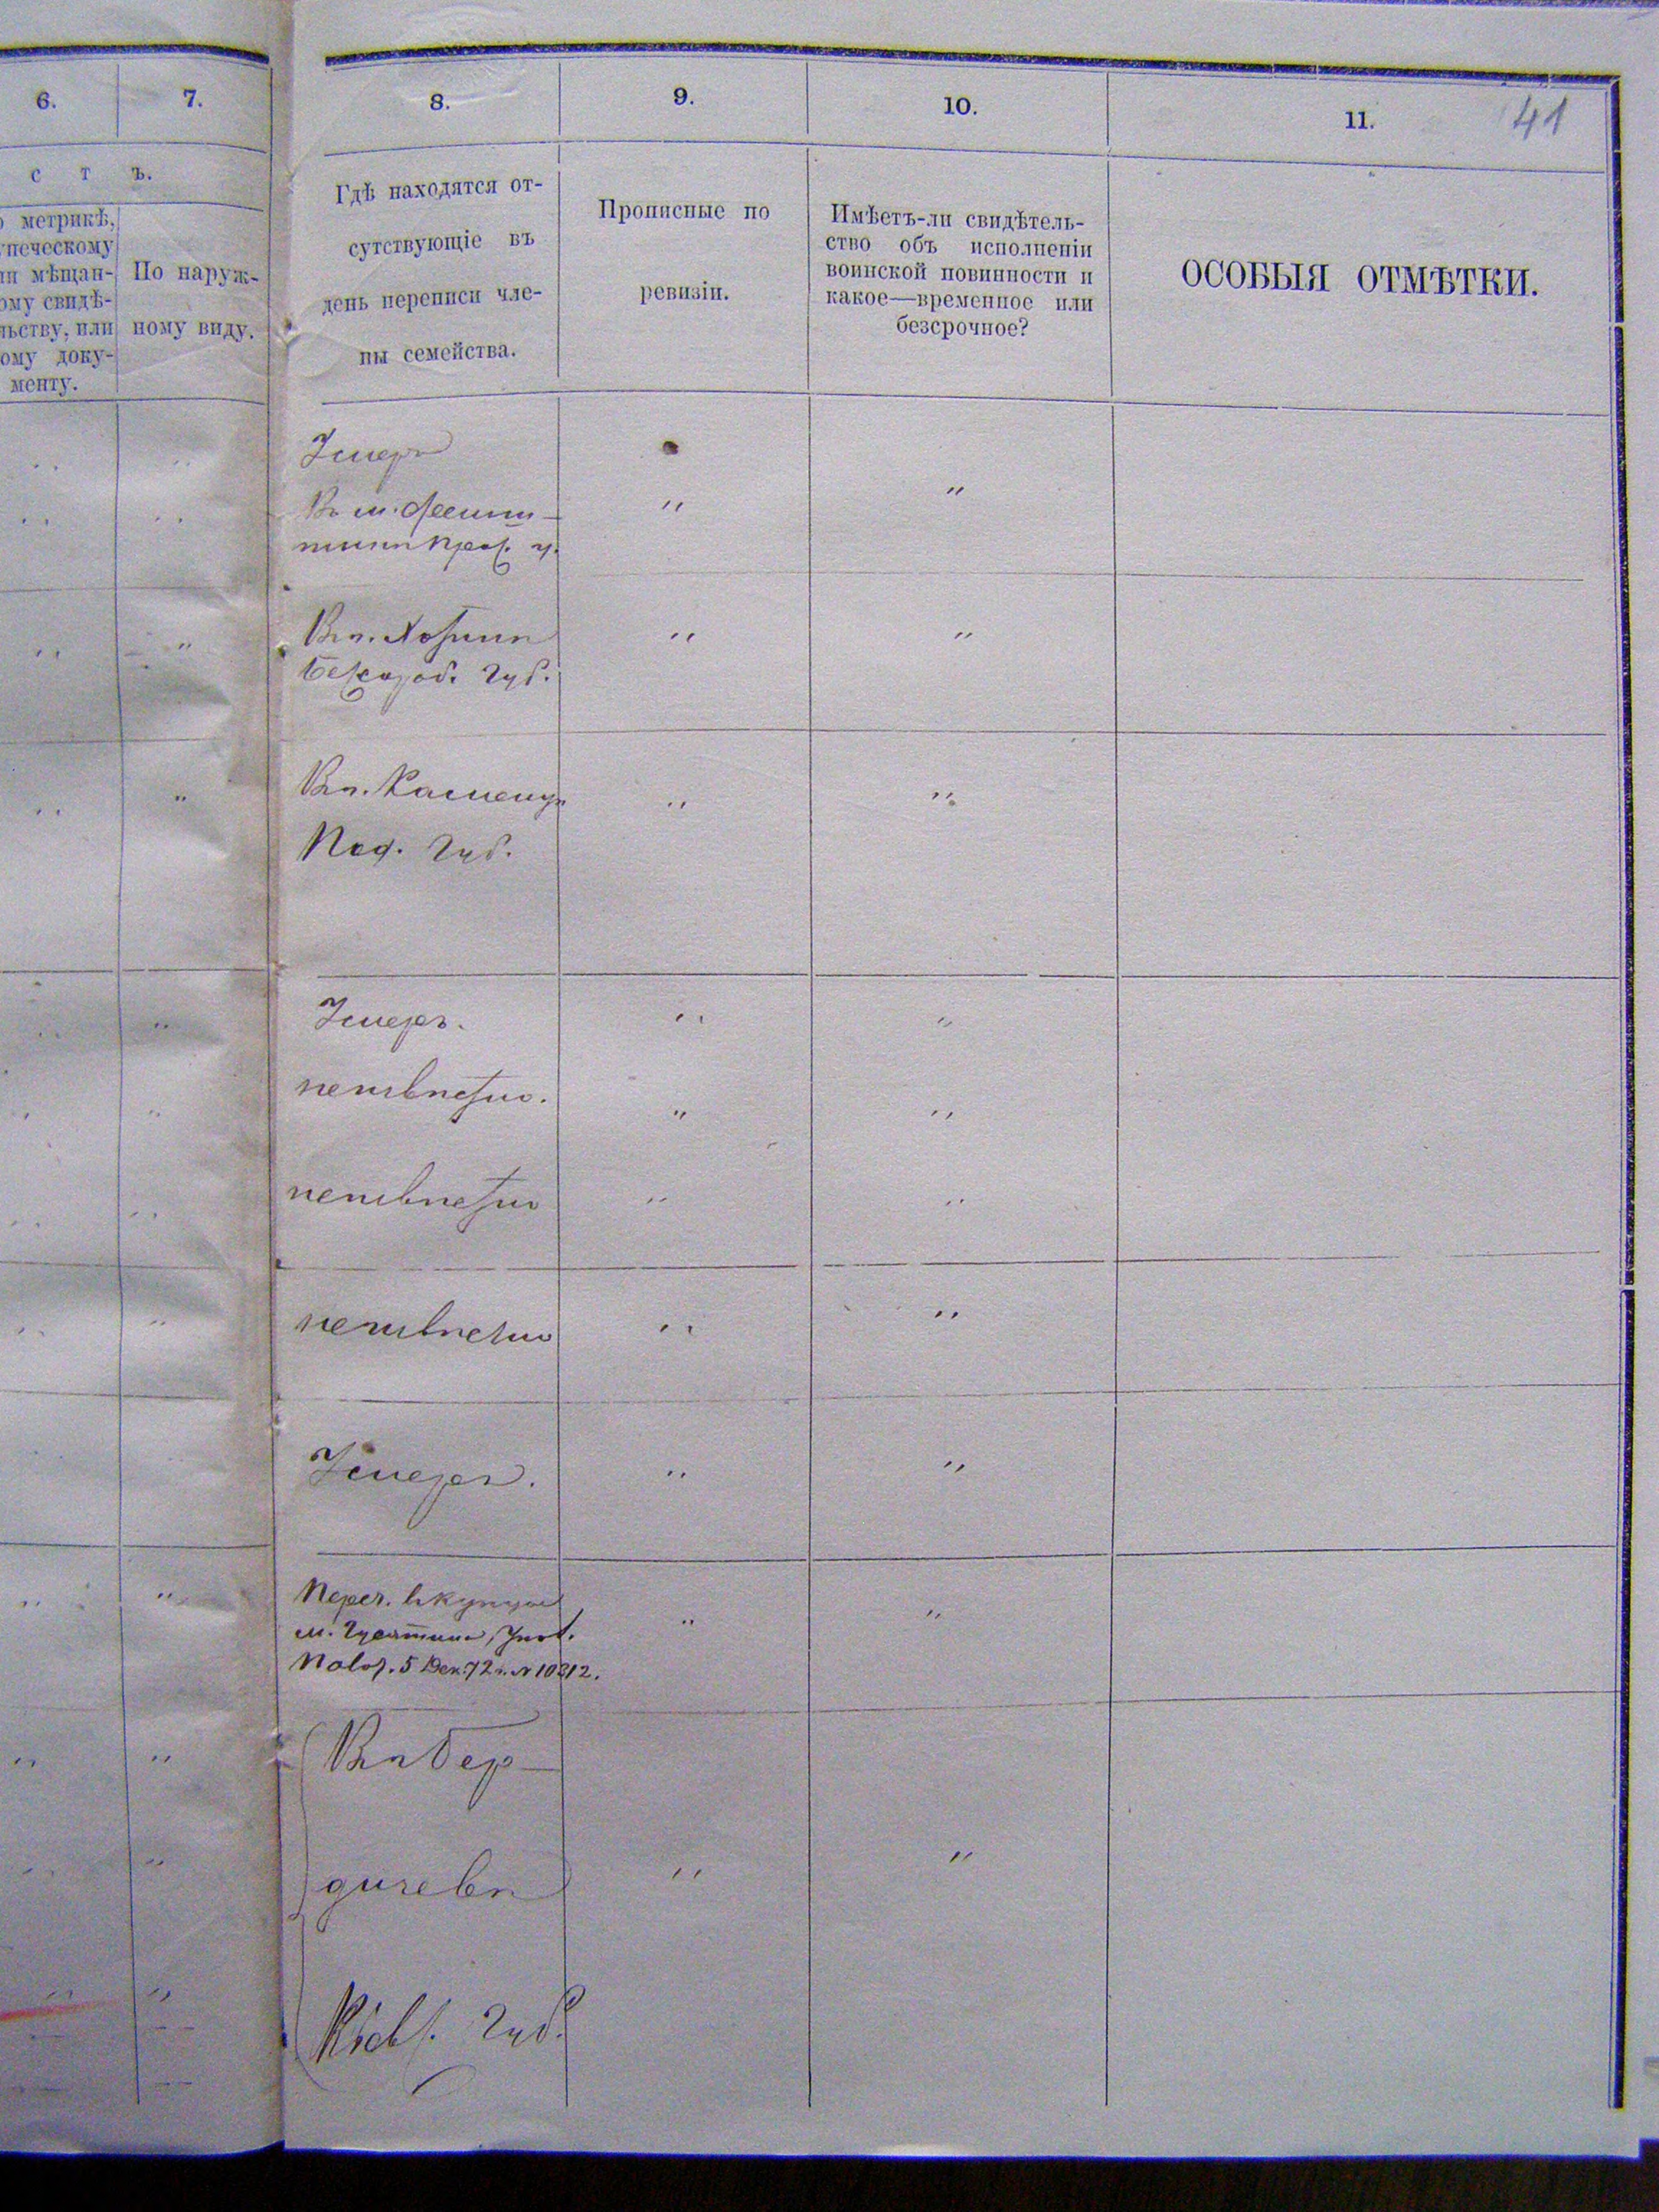 6.
7.
8.
9.
10.
11.
41
с т ъ.
метрикѣ,
печескому
мѣщан-
ому свидѣ-
льству, или
ому доку-
менту.
По наруж-
ному виду.
Гдѣ находятся от-
сутствующіе въ
день переписи чле-
ны семейства.
Прописные по
ревизіи.
Имѣетъ-ли свидѣтель-
ство объ исполненіи
воинской повинности и
какое—временное или
безсрочное?
ОСОБЫЯ ОТМѢТКИ.
Умеръ
Въ м.
Въ г. Хотинѣ
Бессараб. губ.
Въ г. Каменцѣ
Под. губ.
Умеръ.
неизвѣстно.
неизвѣстно
неизвѣстно
Умеръ.
Переч. въ купцы
м. Гусятина,
Полож. 5 Дек. 72 г. № 10312.
Въ г. Бер-
дичевѣ
Кіевс. губ.